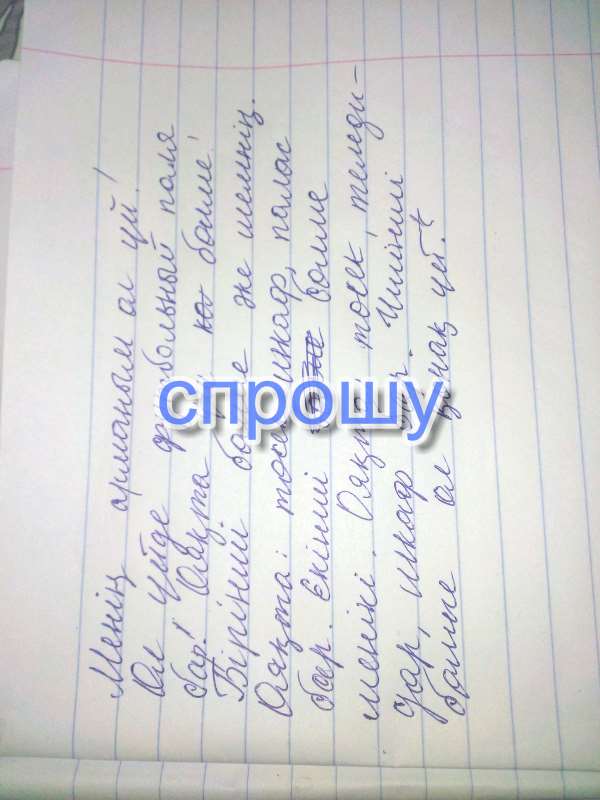 Менің арманым ол үй!
Ол үйде футбольный поля
бар! Оляқта көп бөлме!
Бірінші бөлме же шешенің.
Оляқта: төсек, шкаф, палас
бар. Екінші бөлме
менікі. Оляқта төсек, теледи-
дар, шкаф бар. Үшінші
бөлме ол қонақ үй.
спрошу